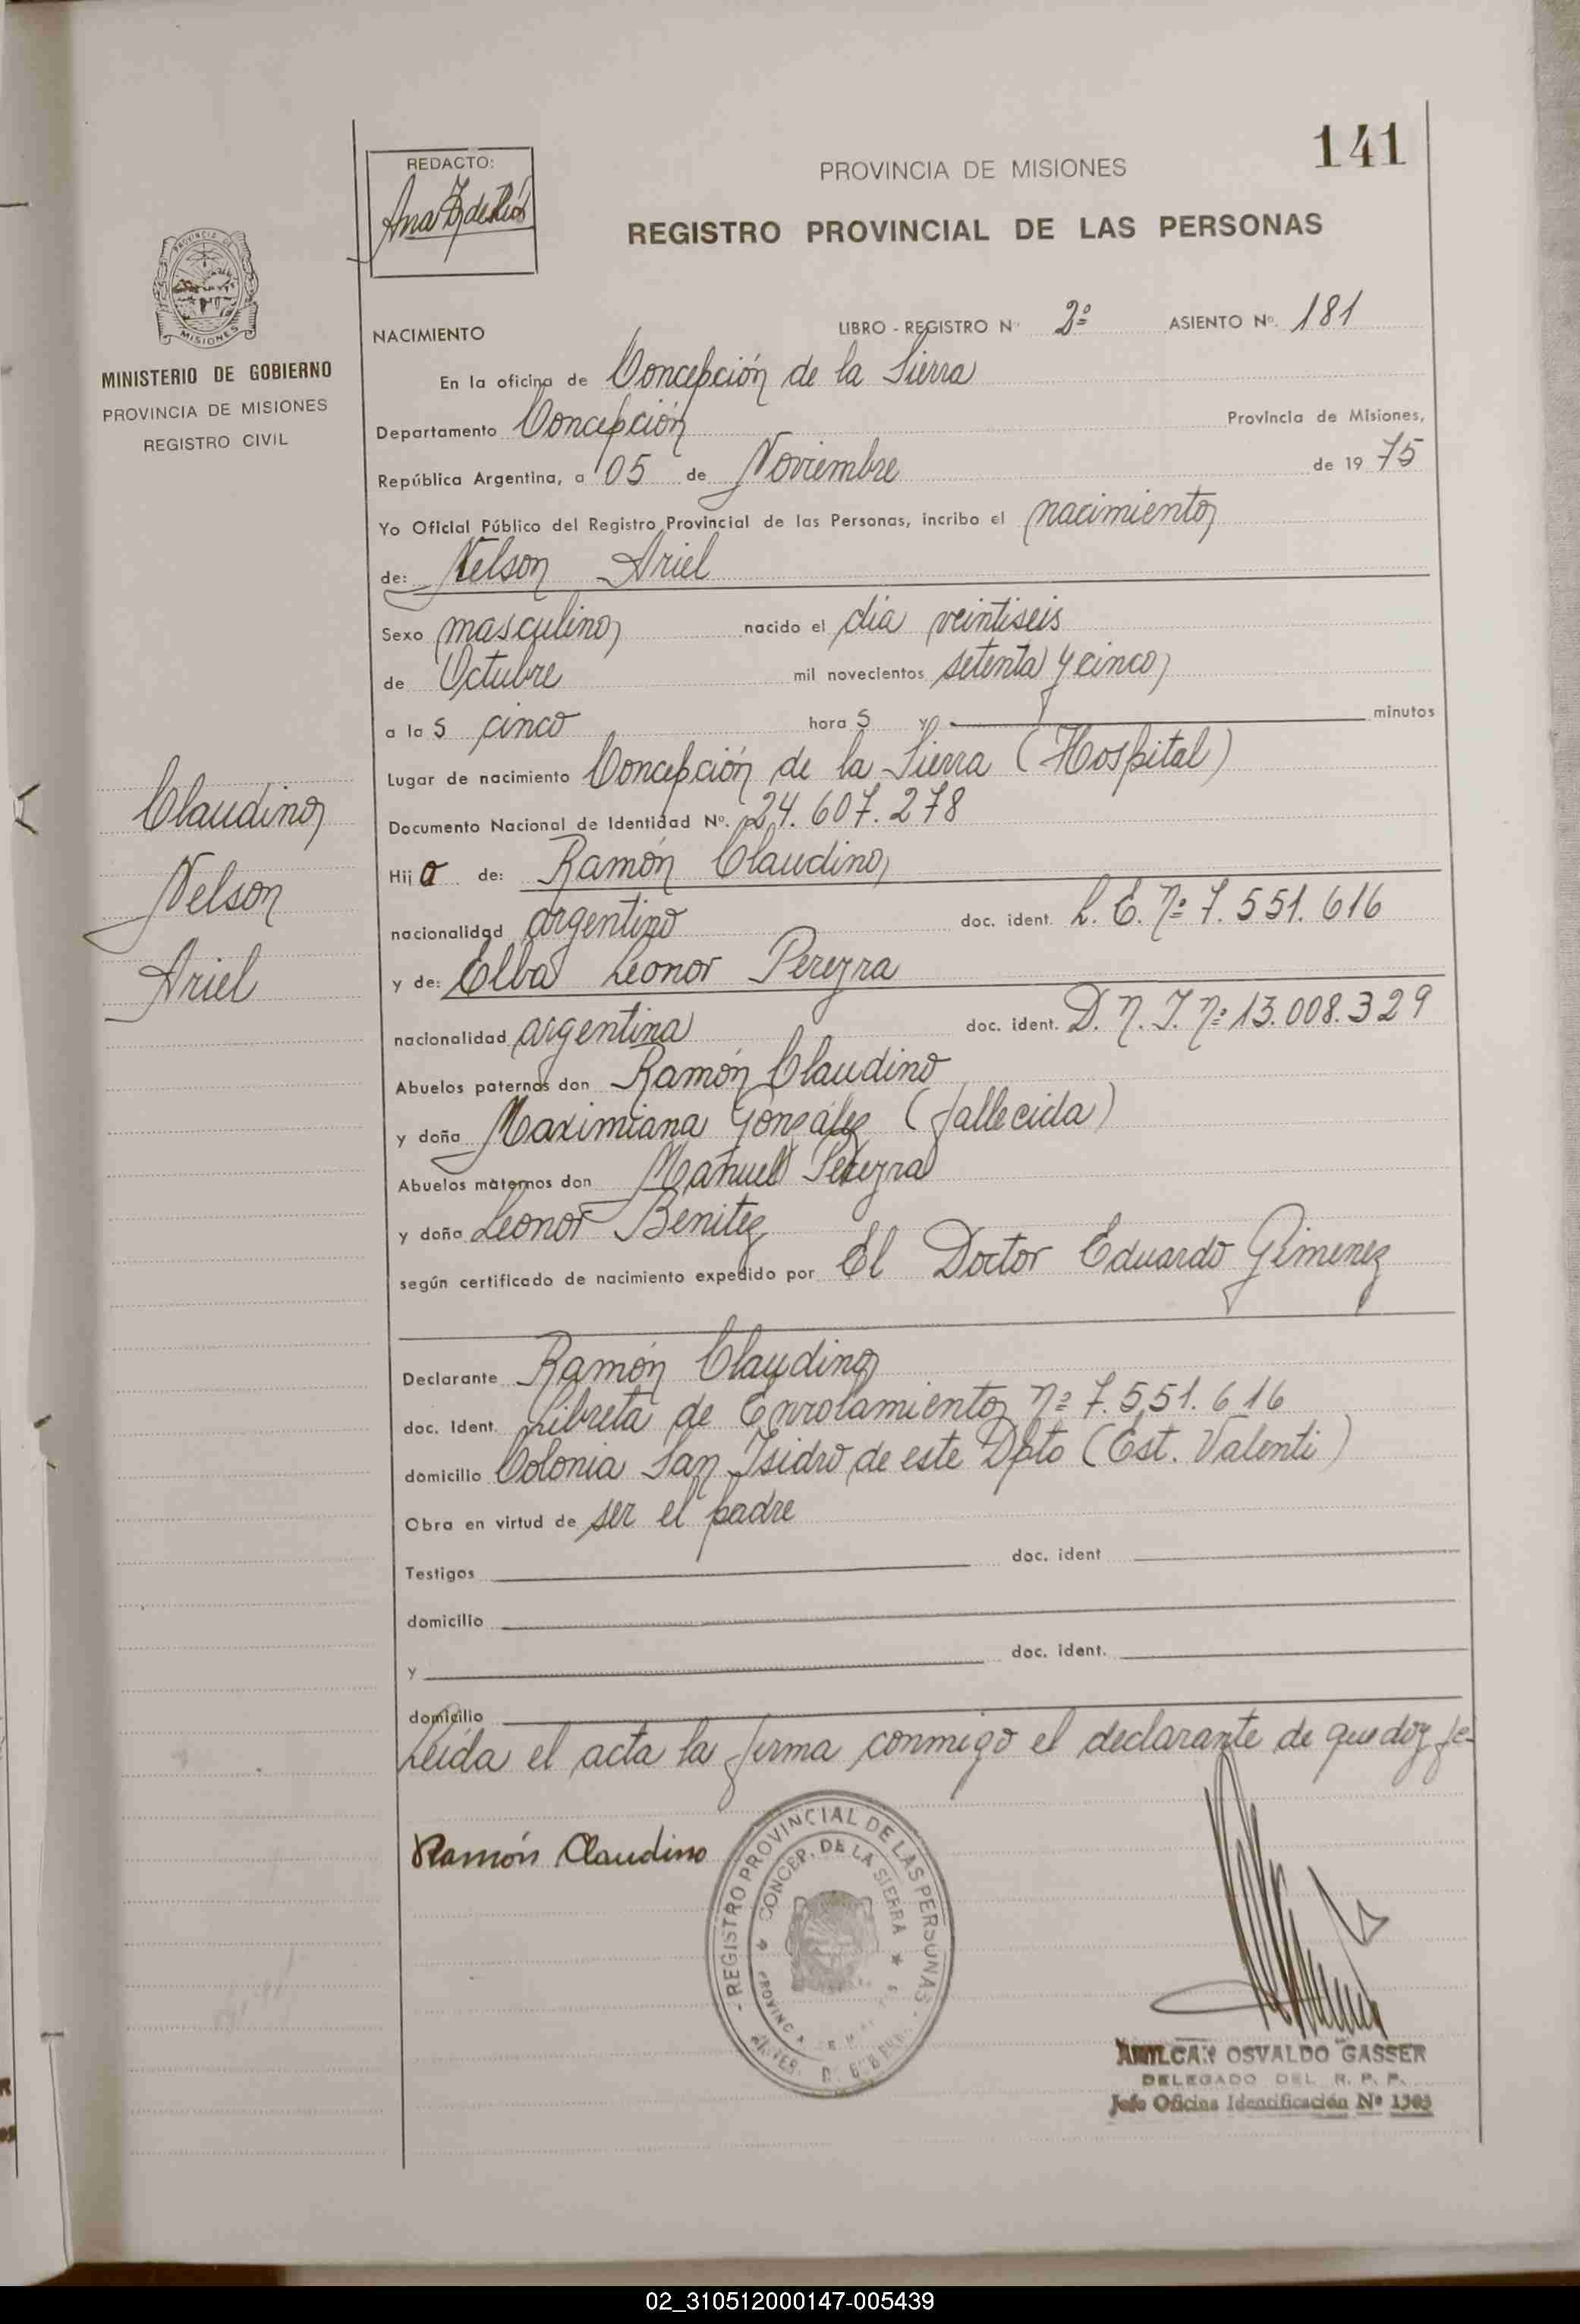 141
REDACTO:
PROVINCIA DE MISIONES
REGISTRO PROVINCIAL DE LAS PERSONAS
MISIONES
MINISTERIO DE GOBIERNO
PROVINCIA DE MISIONES
REGISTRO CIVIL
NACIMIENTO LIBRO - REGISTRO Nº 2º ASIENTO Nº. 181
En la oficina de Concepción de la Sierra
Departamento Concepción Provincia de Misiones,
República Argentina, a 05 de Noviembre de 19 75
Yo Oficial Público del Registro Provincial de las Personas, incribo el nacimiento
de: Nelson Ariel
Sexo masculino nacido el día veintiseis
de Octubre mil novecientos setenta y cinco
a la s cinco hora s y minutos
Lugar de nacimiento Concepción de la Sierra (Hospital)
Documento Nacional de Identidad Nº. 24.607.278
Hij o de: Ramón Claudino
nacionalidad argentino doc. ident. L. E. Nº 7.551.616
y de: Elba Leonor Pereyra
nacionalidad argentina doc. ident. D. N. I. Nº 13.008.329
Abuelos paternos don Ramón Claudino
y doña Maximiana González (fallecida)
Abuelos maternos don Manuel Pereyra
y doña Leonor Benitez
según certificado de nacimiento expedido por El Doctor Eduardo Gimenez
Declarante Ramón Claudino
doc. Ident. Libreta de Enrolamiento Nº 7.551.616
domicilio Colonia San Isidro de este Dpto (Est. Valenti)
Obra en virtud de ser el padre
Testigos doc. ident
domicilio
y doc. ident.
domicilio
Leída el acta la firma conmigo el declarante de que doy fe-
Claudino
Nelson
Ariel
Ramón Claudino
- REGISTRO PROVINCIAL DE LAS PERSONAS -
CONCEP. DE LA SIERRA
AMILCAR OSVALDO GASSER
DELEGADO DEL R. P. P.
Jefe Oficina Identificación Nº 1303
02_310512000147-005439